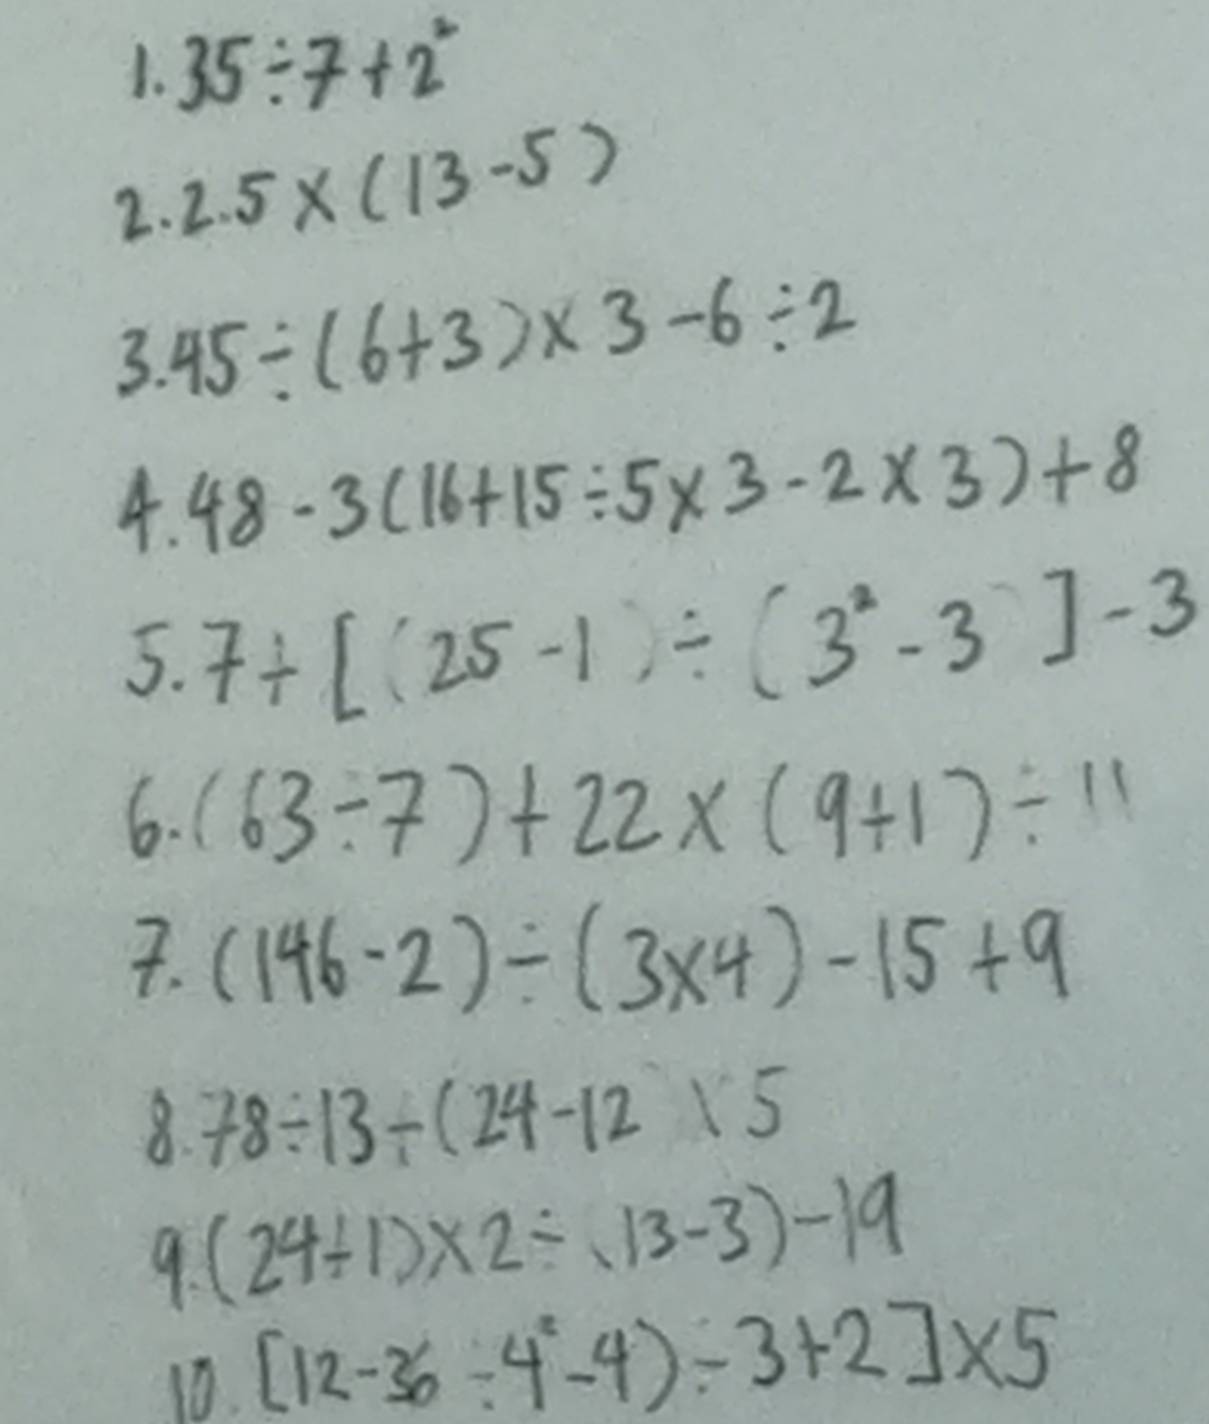 1. 35 ÷ 7 + 2²
2. 2.5 × (13 - 5)
3. 45 ÷ (6 + 3) × 3 - 6 ÷ 2
4. 48 - 3(16 + 15 ÷ 5 × 3 - 2 × 3) + 8
5. 7 + [(25 - 1) ÷ (3² - 3)] - 3
6. (63 ÷ 7) + 22 × (9 + 1) ÷ 11
7. (146 - 2) ÷ (3 × 4) - 15 + 9
8. 78 ÷ 13 + (24 - 12) \ 5
9. (24 + 1) × 2 ÷ (13 - 3) - 19
10. [12 - 36 ÷ 4² - 4) ÷ 3 + 2] × 5